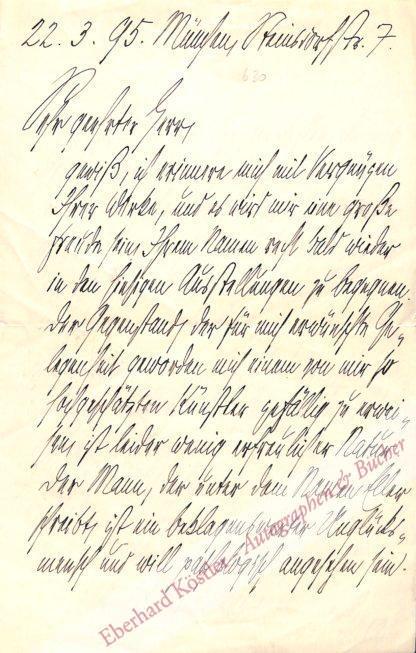 22. 3. 95. München, Steinsdorfstr. 7.
630
Sehr geehrter Herr,
gewiß, ich erinnere mich mit Vergnügen
Ihrer Werke, und es wird mir eine große
Freude sein, Ihrem Namen recht bald wieder
in den hiesigen Ausstellungen zu begegnen.
Der Gegenstand, der für mich erwünschte Ge-
legenheit geworden mich einem von mir so
hochgeschätzten Künstler gefällig zu erwei-
sen, ist leider wenig erfreulicher Natur.
Der Mann, der unter dem Namen
schreibt, ist ein beklagenswerter Unglücks-
mensch und will pathologisch angesehen sein.
Eberhard Köstler Autographen & Bücher